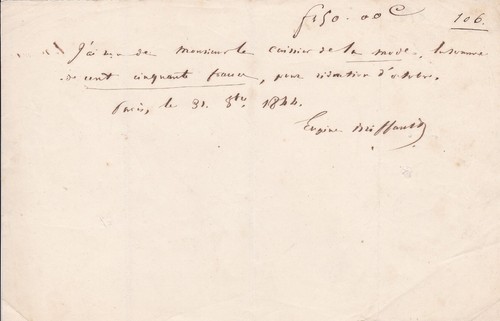 f150.00C 106.
J'ai reçu de Monsieur le caissier de la mode, la somme
de cent cinquante francs, pour rédaction d'octobre.
Paris, le 31. 8bre 1844.
Eugène Briffault